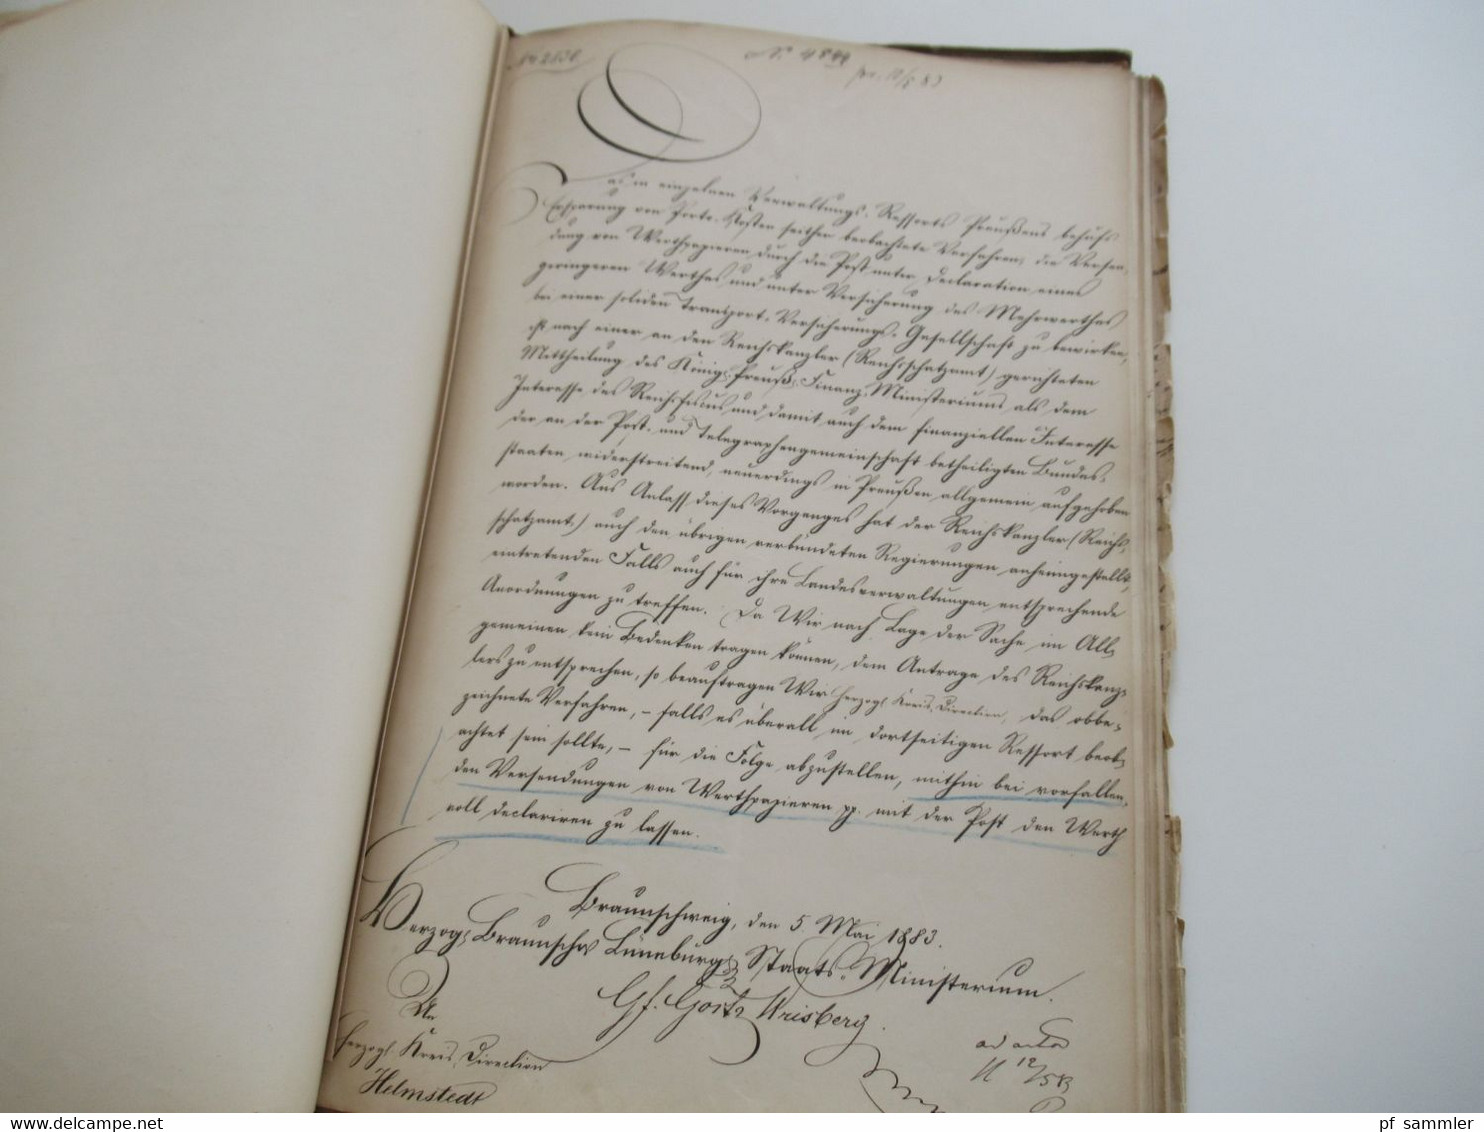 No 2830
N. 4844
pr. 12/5 83
Das in einzelnen Verwaltungs-Ressorts Preußens behufs
Ersparung von Porto-Kosten seither beobachtete Verfahren, die Versen-
dung von Werthpapieren durch die Post unter Declaration eines
geringeren Werthes und unter Versicherung des Mehrwerthes
bei einer soliden Transport-Versicherungs-Gesellschaft zu bewirken,
ist nach einer an den Reichskanzler (Reichsschatzamt) gerichteten
Mittheilung des Königl. Preuß. Finanz-Ministeriums als dem
Interesse des Reichsfiscus und damit auch dem finanziellen Interesse
der an der Post- und Telegraphengemeinschaft betheiligten Bundes-
staaten widerstreitend, neuerdings in Preußen allgemein aufgehoben
worden. Aus Anlass dieses Vorganges hat der Reichskanzler (Reichs-
schatzamt) auch den übrigen verbündeten Regierungen anheimgestellt,
eintretenden Falls auch für ihre Landesverwaltungen entsprechende
Anordnungen zu treffen. Da Wir nach Lage der Sache im All-
gemeinen kein Bedenken tragen können, dem Antrage des Reichskanz-
lers zu entsprechen, so beauftragen Wir Herzogl. Kreis-Direction, das obbe-
zeichnete Verfahren, – falls es überall im dortseitigen Ressort beob-
achtet sein sollte, – für die Folge abzustellen, mithin bei vorfallen-
den Versendungen von Werthpapieren pp. mit der Post den Werth
voll declariren zu lassen.
Braunschweig, den 5. Mai 1883.
Herzogl. Braunschw. Lüneburg. Staats-Ministerium.
Gf. Görtz Wrisberg.
An
Herzogl. Kreis-Direction
Helmstedt
ad acta
H 12/5 83
pf sammler